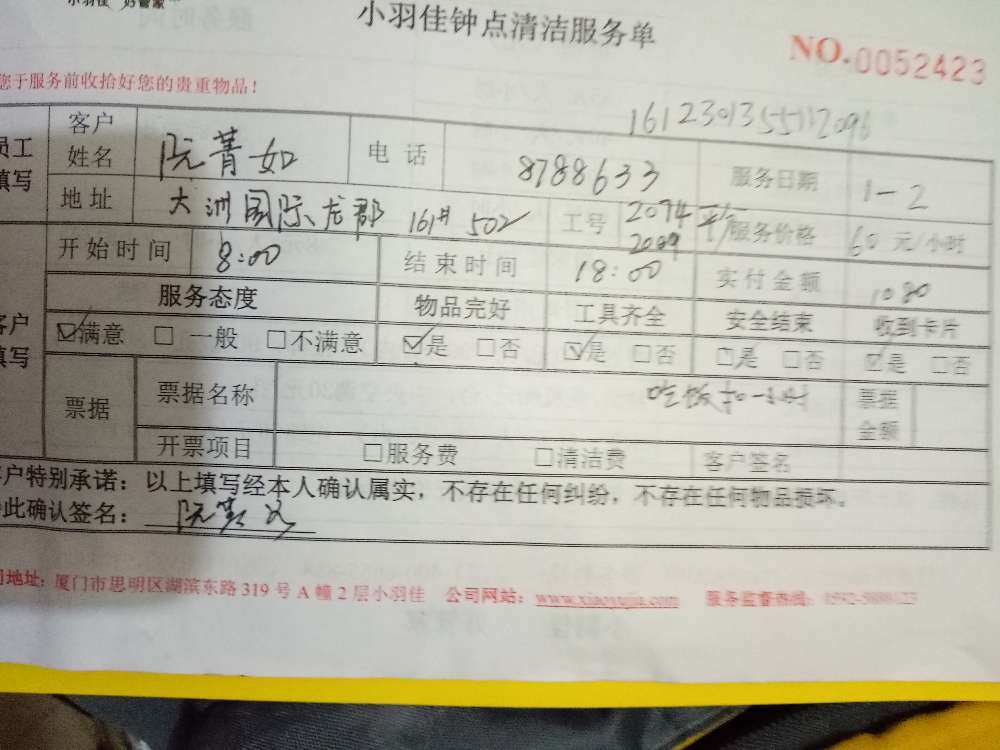 小羽佳 好管家
小羽佳钟点清洁服务单
NO.0052423
您于服务前收拾好您的贵重物品！
员工填写 客户姓名 阮菁如 电话 8788633 服务日期 1-2
地址 大洲国际龙郡 161# 502 工号 2074 2009 服务价格 60 元/小时
开始时间 8:00 结束时间 18:00 实付金额 1080
服务态度 物品完好 工具齐全 安全结束 收到卡片
客户填写 ☑满意 □一般 □不满意 ☑是 □否 ☑是 □否 □是 □否 ☑是 □否
票据 票据名称 吃饭扣一小时 票据金额
开票项目 □服务费 □清洁费 客户签名
客户特别承诺：以上填写经本人确认属实，不存在任何纠纷，不存在任何物品损坏。
此确认签名：阮菁如
司地址：厦门市思明区湖滨东路 319 号 A 幢 2 层小羽佳 公司网站：www.xiaoyujia.com 服务监督热线：